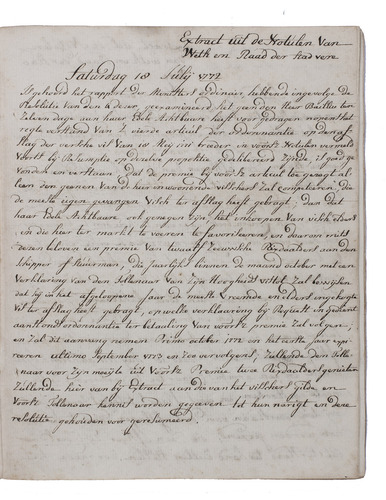 Extract uit de Notulen Van
Weth en Raad der Stad vere
Saturdag 18 Julij 1772
Is gehoord het rapport der Heeren ordinair, hebbende ingevolge de
Resolutie van den 4 deser geexamineerd het geen den Heer Bailluw ten
Zelven dage aan haer Eele Achtbaare heeft voorgedragen nopens het
regte verstand van 't vierde articul der ordonnantie op den af
slag der versche vis van 18 Meij in treden en voorts Notulen vermeld
Voorts bij Resumptie op deselve propositie gedelibereerd Zijnde, is goed ge
vonden en verstaan dat de premie bij voorsz articul toe gesegt al
leen den geenen van de hier inwoonende visschers Zal competeeren, die
de meeste eigen gevangen Visch ter afslag heeft gebragt; dan dat
haar Eele Achtbaare ook genegen zijn, het inkoopen van visch elders
en die hier ter markt te voeren te favoriseeren, en daarom mits
desen beloven een premie van twaalf Zeeuwsche Rijxdaalders aan den
schipper of stuurman, die jaarlijks binnen de maand october met een
Verklaring van den Tollenaar van Zijn Hoogheid vistol Zal bewijsen
dat hij in het afgeloopene Jaar de meeste vreemde en elders ingekogte
vis ter afslag heeft gebragt, op welke verklaring bij Regieft in
aanstonds ordonnantie ter betaaling van voorsz premie Zal volgen;
en Zal dit aanvang nemen Primo october 1772 en het eerste Jaar expi
reeren ultimo September 1773 en Zoo vervolgens; Zullende den Tolle
naar voor Zijn moeijte uit Voorsz Premie twee Rijxdaalders genieten
Zullende hier van bij Extract aan die van het visschers gilde en
Voorsz Tollenaar kennis worden gegeven tot hun narigt en dese
resolutie gehouden voor geresumeerd.